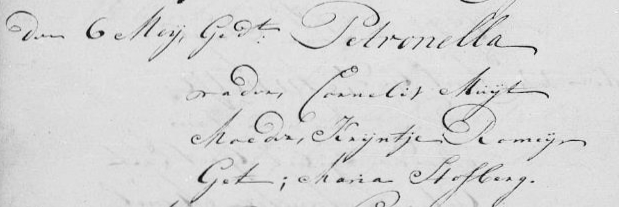 den 6 Meij, Gedt. Petronella
vader, Cornelis Muijt
Moeder, Krijntje Romeijn
Get; Maria Stofberg.